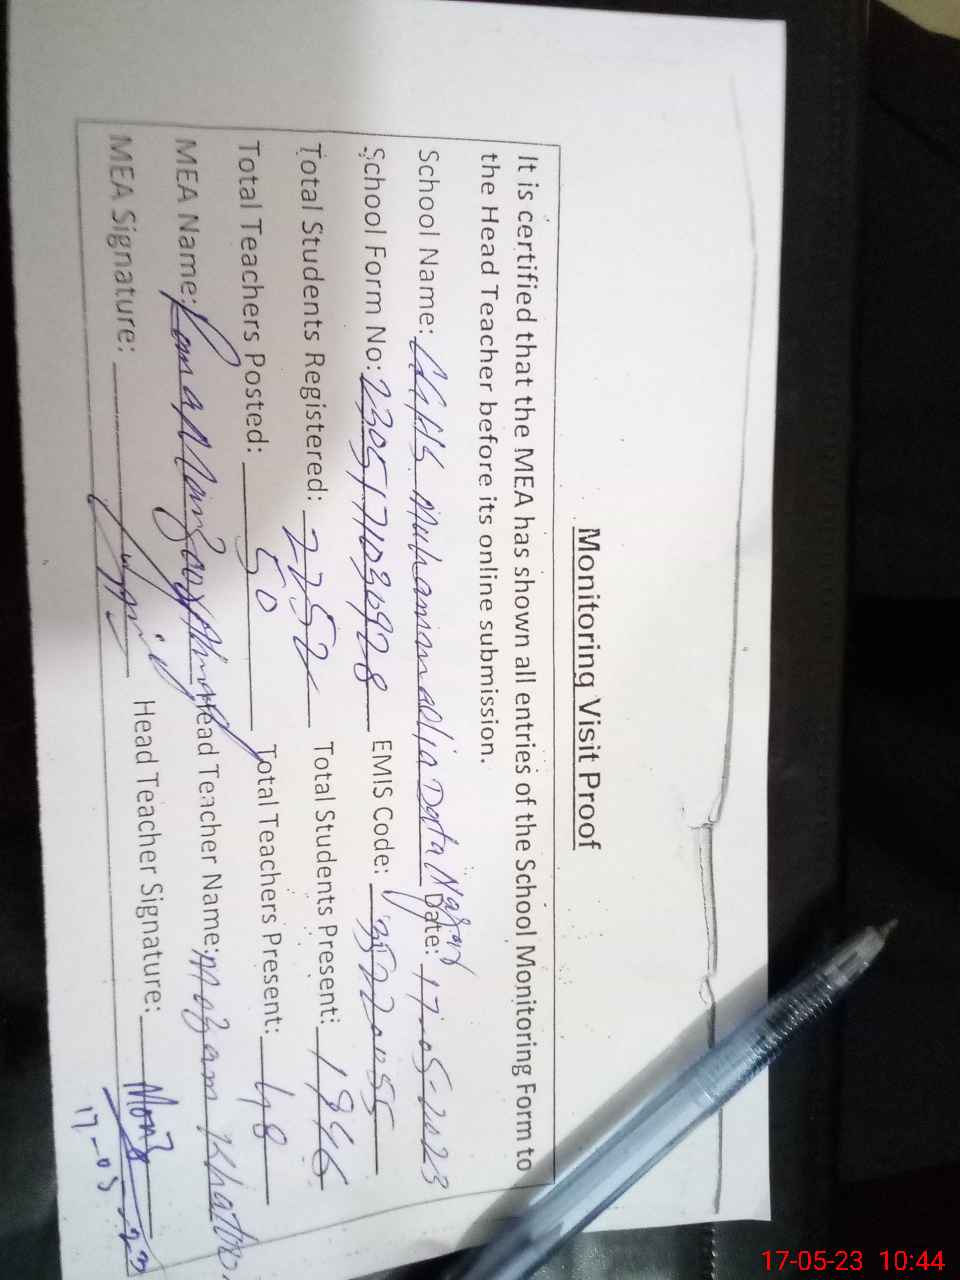 Monitoring Visit Proof
It is certified that the MEA has shown all entries of the School Monitoring Form to
the Head Teacher before its online submission.
School Name: GGHS Data Nagar Date: 17-05-2023
School Form No: 2305171030928 EMIS Code: 35720055
Total Students Registered: 2252 Total Students Present: 1846
Total Teachers Posted: 50 Total Teachers Present: 48
MEA Name: Head Teacher Name:
MEA Signature: Head Teacher Signature:
17-05-23 10:44